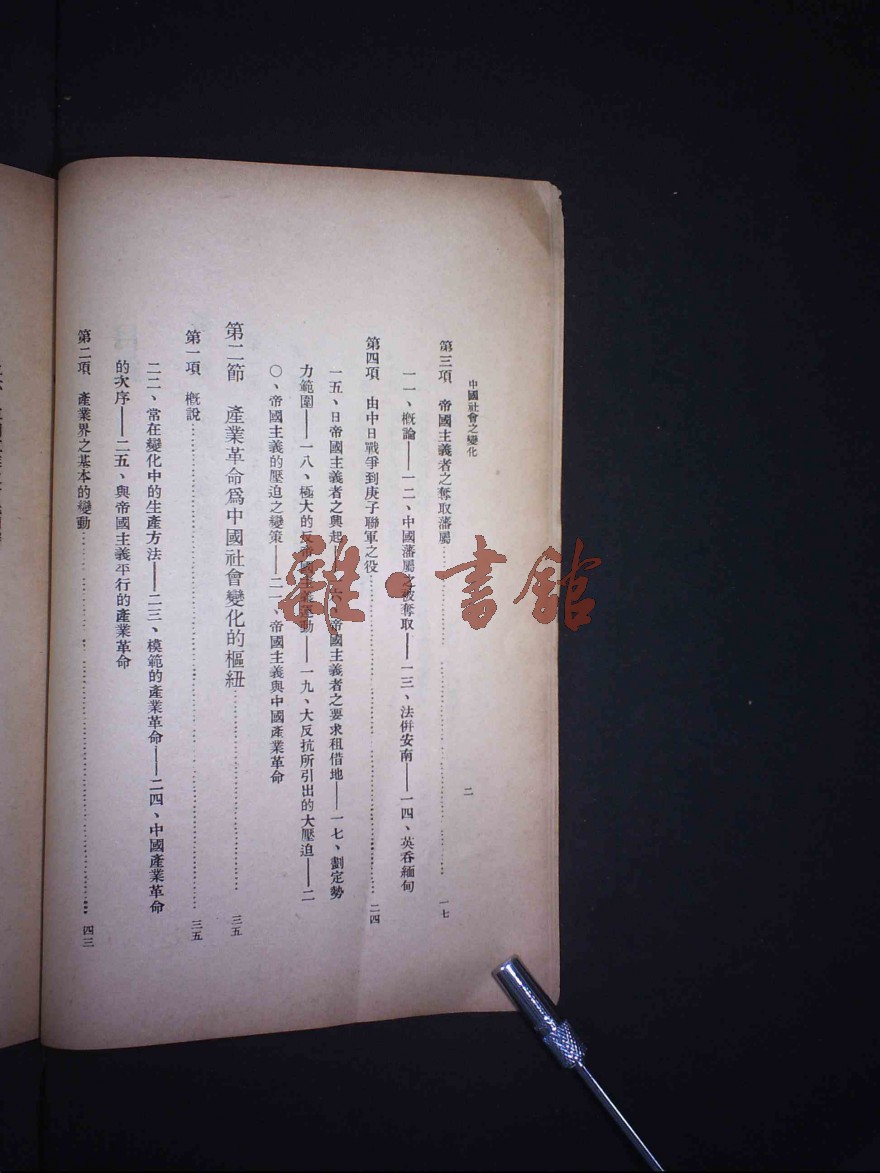 中國社會之變化
二
第三項　帝國主義者之奪取藩屬……一七
一一、概論——一二、中國藩屬之被奪取——一三、法併安南——一四、英吞緬甸
第四項　由中日戰爭到庚子聯軍之役……二四
一五、日帝國主義者之興起 六、帝國主義者之要求租借地——一七、劃定勢
力範圍——一八、極大的反帝國主義運動——一九、大反抗所引出的大壓迫——二
〇、帝國主義的壓迫之變策——二一、帝國主義與中國產業革命
第二節　產業革命爲中國社會變化的樞紐……三五
第一項　概說……三五
二二、常在變化中的生產方法——二三、模範的產業革命——二四、中國產業革命
的次序——二五、與帝國主義平行的產業革命
第二項　產業界之基本的變動……四三
雜·書館